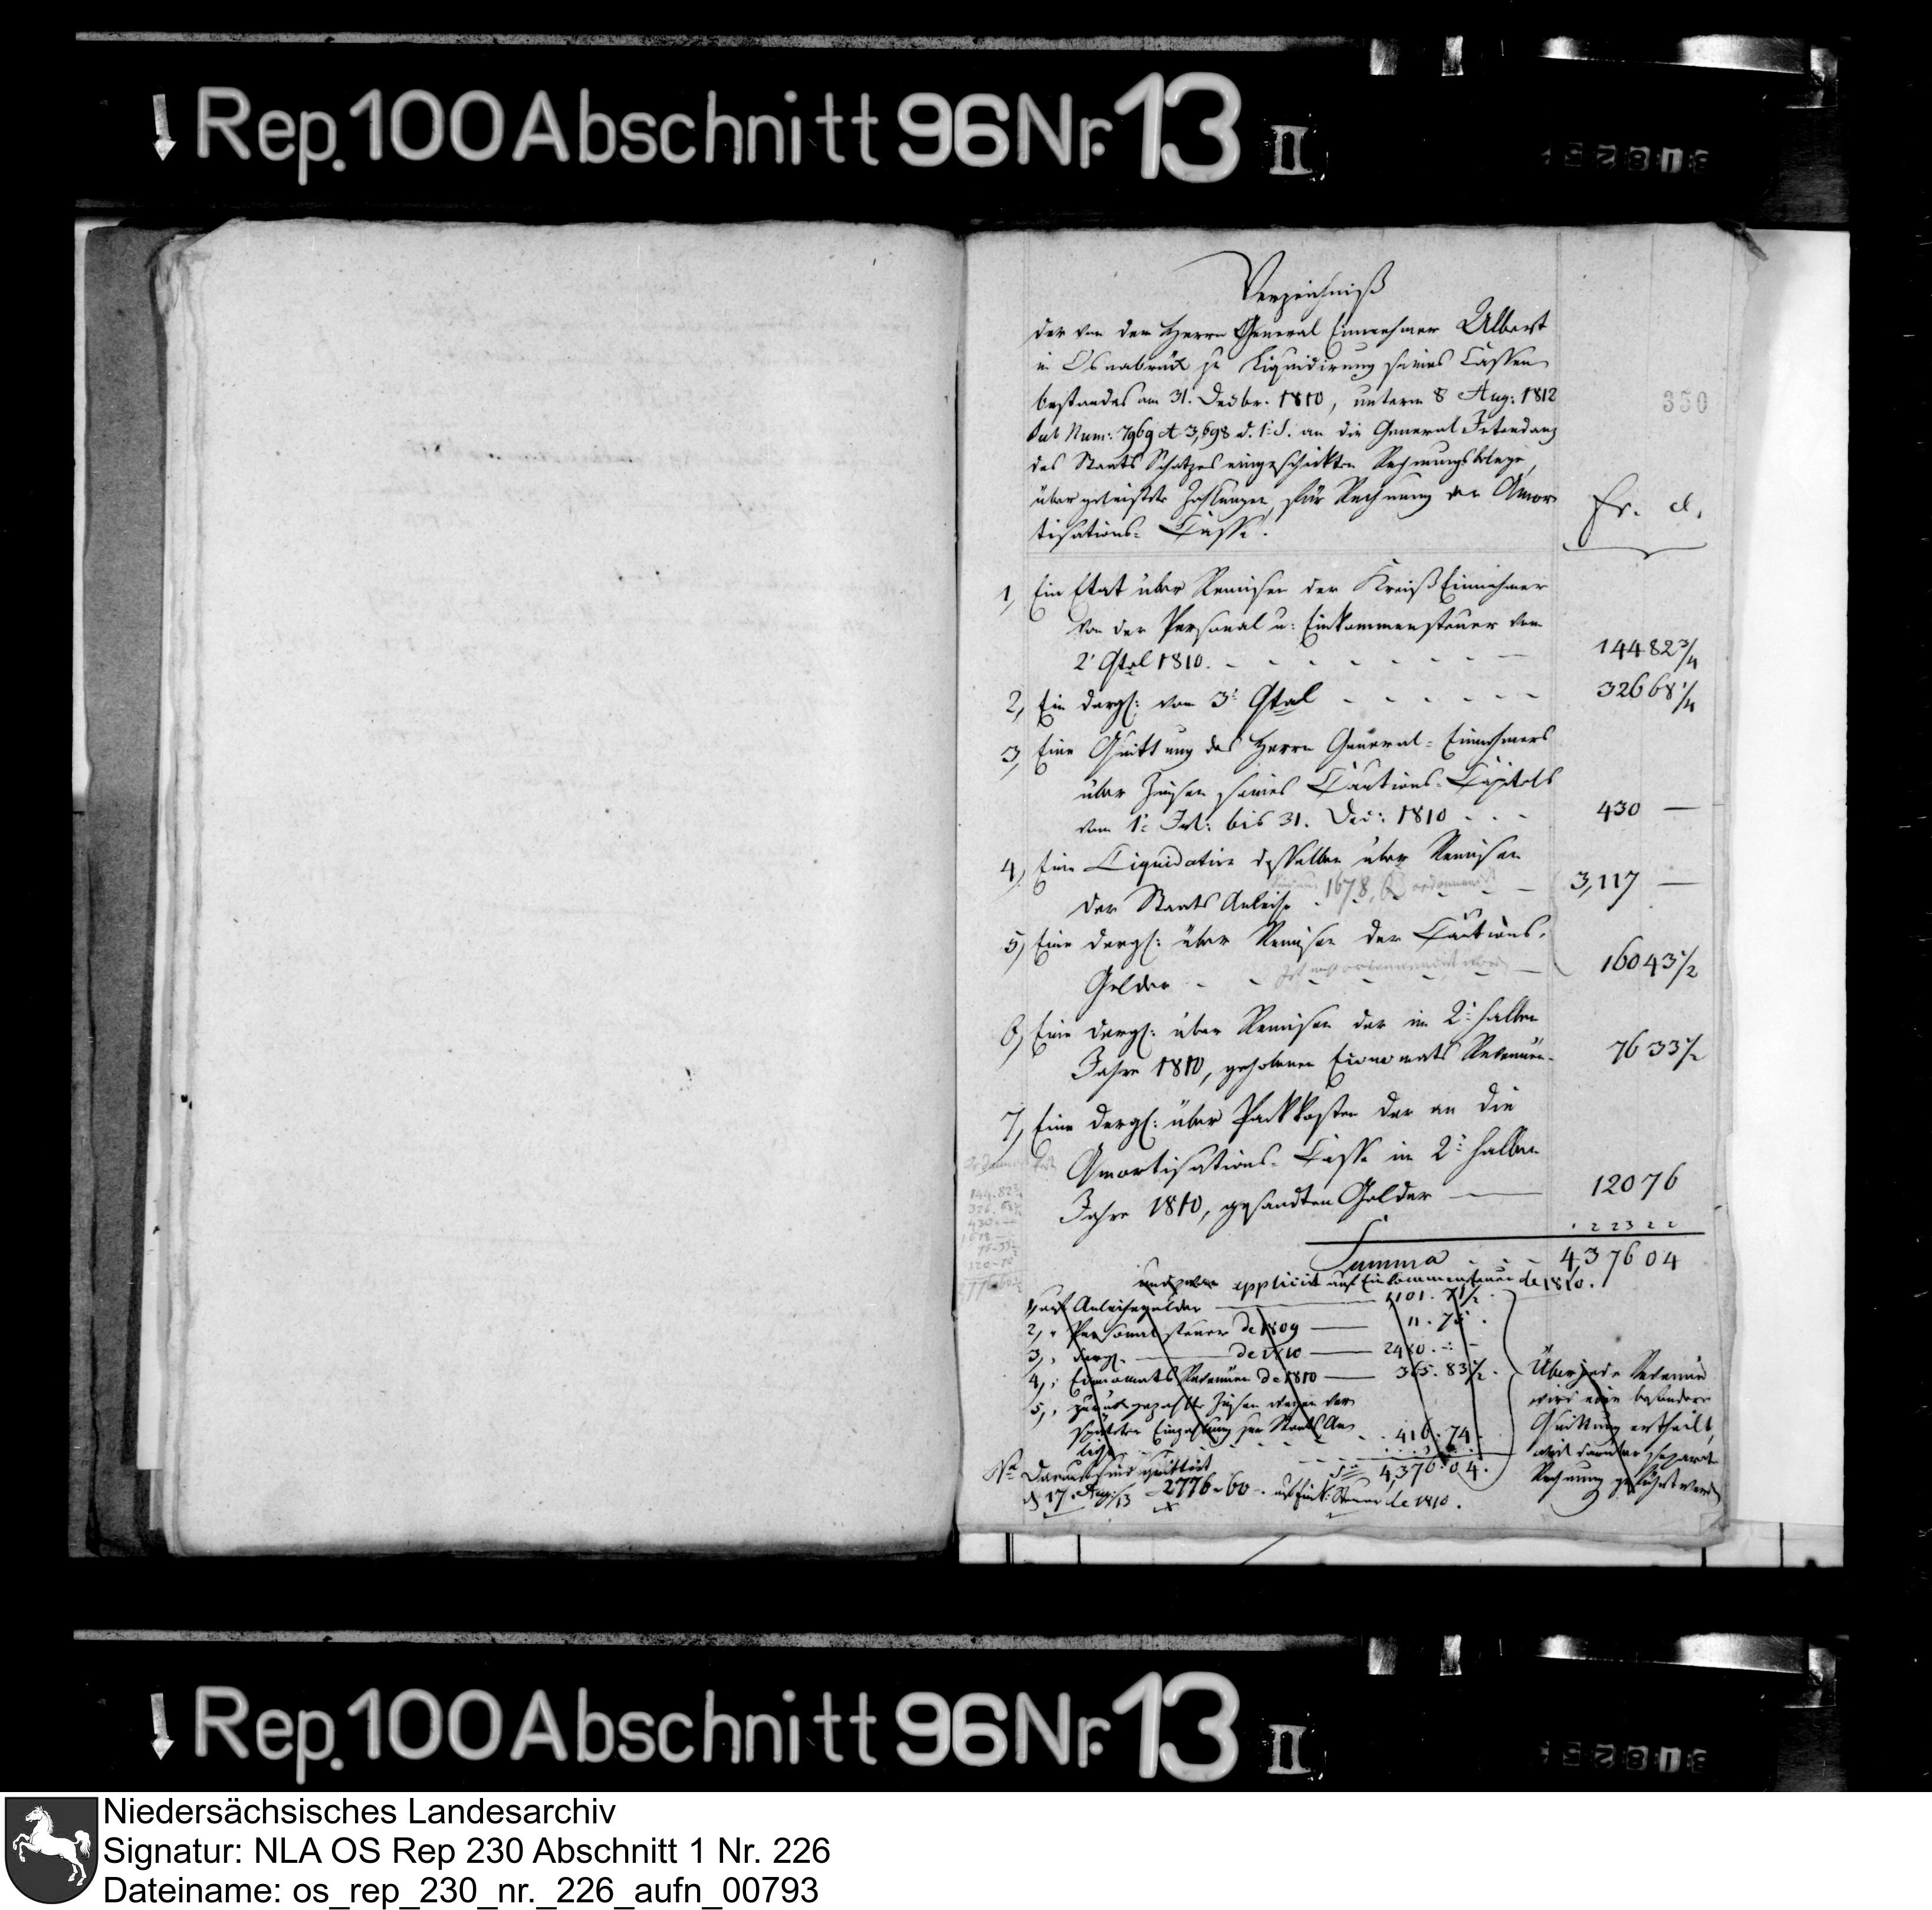 Rep. 100 Abschnitt 96 Nr. 13 II
Verzeichniß
der von dem Herrn General Einnehmer Albert
in Osnabrück zu Liquidirung seines Cassen
bestandes am 31. Decbr. 1810, unterm 8 Aug: 1812
sub Num: 7969 et 3,698 an die General Intendanz
des Staats Schatzes eingeschickten Rechnungsbelege,
über geleistete Zahlungen, für Rechnung der Amor
tisations= Casse.
350
Fr. C.
1, Ein Etat über Remisen der Kreiß Einnehmer
von der Personal u: Einkommensteuer vom
2' Qtal 1810. 144 82 3/4
2, Ein dergl: vom 3t Qtal 326 68 1/4
3, Eine Quittung des Herrn General= Einnehmers
über Zinsen seines Cautions= Capitals
vom 1t Jul: bis 31. Dec: 1810 430 —
4, Eine Liquidation desselben über Remisen
der Staats Anleihe 1678, 3,117 —
5, Eine dergl: über Remisen der Cautions=
Gelder 160 43 1/2
6, Eine dergl: über Remisen der im 2t halben
Jahre 1810, gehobenen Economats Revenüen 76 33 1/2
7, Eine dergl: über Packkosten der an die
Amortisations= Casse im 2t halben
Jahre 1810, gesandten Gelder 120 76
Summa 4,376 04
und zwar applicirt auf Einkommensteuer de 1810.
1, auf Anleihegelder 1101. 71 1/2
2, " Personalsteuer de 1809 11. 75
3, " dergl. de 1810 2480. -
4, " Economats Revenüen de 1810 365. 83 1/2
5, " zurückgezahlte Zinsen wegen der
späteren Einzahlung zur Staats An
leihe 416. 74.
4,376. 04.
Über jede Revenüe
wird eine besondere
Quittung ertheilt,
weil darüber separate
Rechnung geführt werd
Na Darauf sind quittirt
d 17. Aug: 13 2776 - 60 - auf Eink: Steuer de 1810.
Rep. 100 Abschnitt 96 Nr. 13 II
Niedersächsisches Landesarchiv
Signatur: NLA OS Rep 230 Abschnitt 1 Nr. 226
Dateiname: os_rep_230_nr._226_aufn_00793